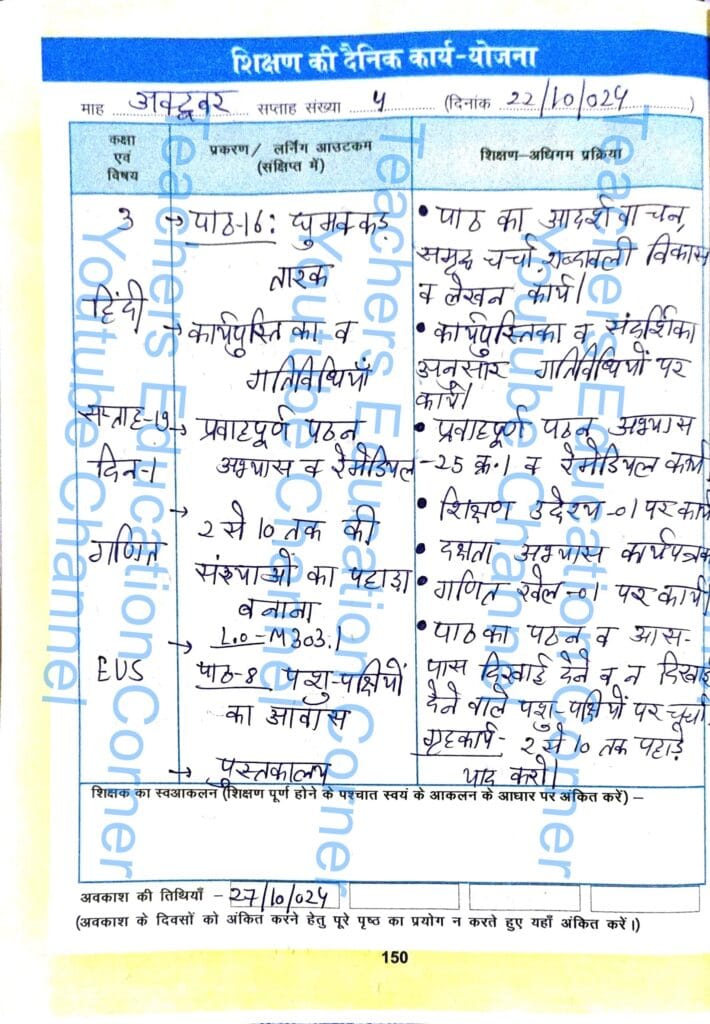 शिक्षण की दैनिक कार्य-योजना
माह अक्टूबर सप्ताह संख्या 4 (दिनांक 22/10/024)
कक्षा एवं विषय
प्रकरण/ लर्निंग आउटकम (संक्षिप्त में)
शिक्षण-अधिगम प्रक्रिया
3
हिंदी
सप्ताह-17
दिन-1
गणित
EVS
→ पाठ-16: घुमक्कड़
तारक
→ कार्यपुस्तिका व
गतिविधियाँ
→ प्रवाहपूर्ण पठन
अभ्यास व रेमेडियल
→ 2 से 10 तक की
संख्याओं का पहाड़ा
बनाना
L.O-M303.1
→ पाठ-8 पशु-पक्षियों
का आवास
→ पुस्तकालय
• पाठ का आदर्श वाचन,
समृद्ध चर्चा, शब्दावली विकास
व लेखन कार्य।
• कार्यपुस्तिका व संदर्शिका
अनुसार गतिविधियों पर
कार्य।
• प्रवाहपूर्ण पठन अभ्यास
-25 क्र.1 व रेमेडियल कार्य
• शिक्षण उद्देश्य-01 पर कार्य
• दक्षता अभ्यास कार्यपत्रक
• गणित खेल-01 पर कार्य।
• पाठ का पठन व आस-
पास दिखाई देने व न दिखाई
देने वाले पशु-पक्षियों पर चर्चा
गृहकार्य- 2 से 10 तक पहाड़े
याद करो।
शिक्षक का स्वआकलन (शिक्षण पूर्ण होने के पश्चात स्वयं के आकलन के आधार पर अंकित करें) –
अवकाश की तिथियाँ - 27/10/024
(अवकाश के दिवसों को अंकित करने हेतु पूरे पृष्ठ का प्रयोग न करते हुए यहाँ अंकित करें।)
150
Teachers Education Corner
Youtube Channel
Teachers Education Corner
Youtube Channel